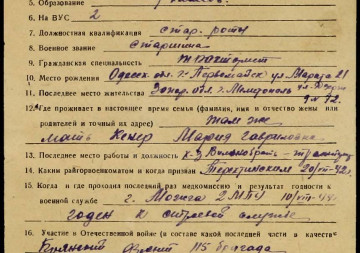 5. Образование
6. На ВУС 2
7. Должностная квалификация стар. роты
8. Военное звание старшина
9. Гражданская специальность тракторист
10. Место рождения Одесск. обл. г. Первомайск ул. Марата 21
11. Последнее место жительства Запор. обл. г. Мелитополь
№ 72
12. Где проживает в настоящее время семья (фамилия, имя и отчество жены или
родителей и точный их адрес) там же
мать Мария Гавриловна
13. Последнее место работы и должность к-з
14. Каким райгорвоенкоматом и когда призван
15. Когда и где проходил последний раз медкомиссию и результат годности к
военной службе г. 2 МПУ
годен к строевой службе
16. Участие в Отечественной войне (в составе какой последней части и в качестве
Брянский Фронт 115 бригада